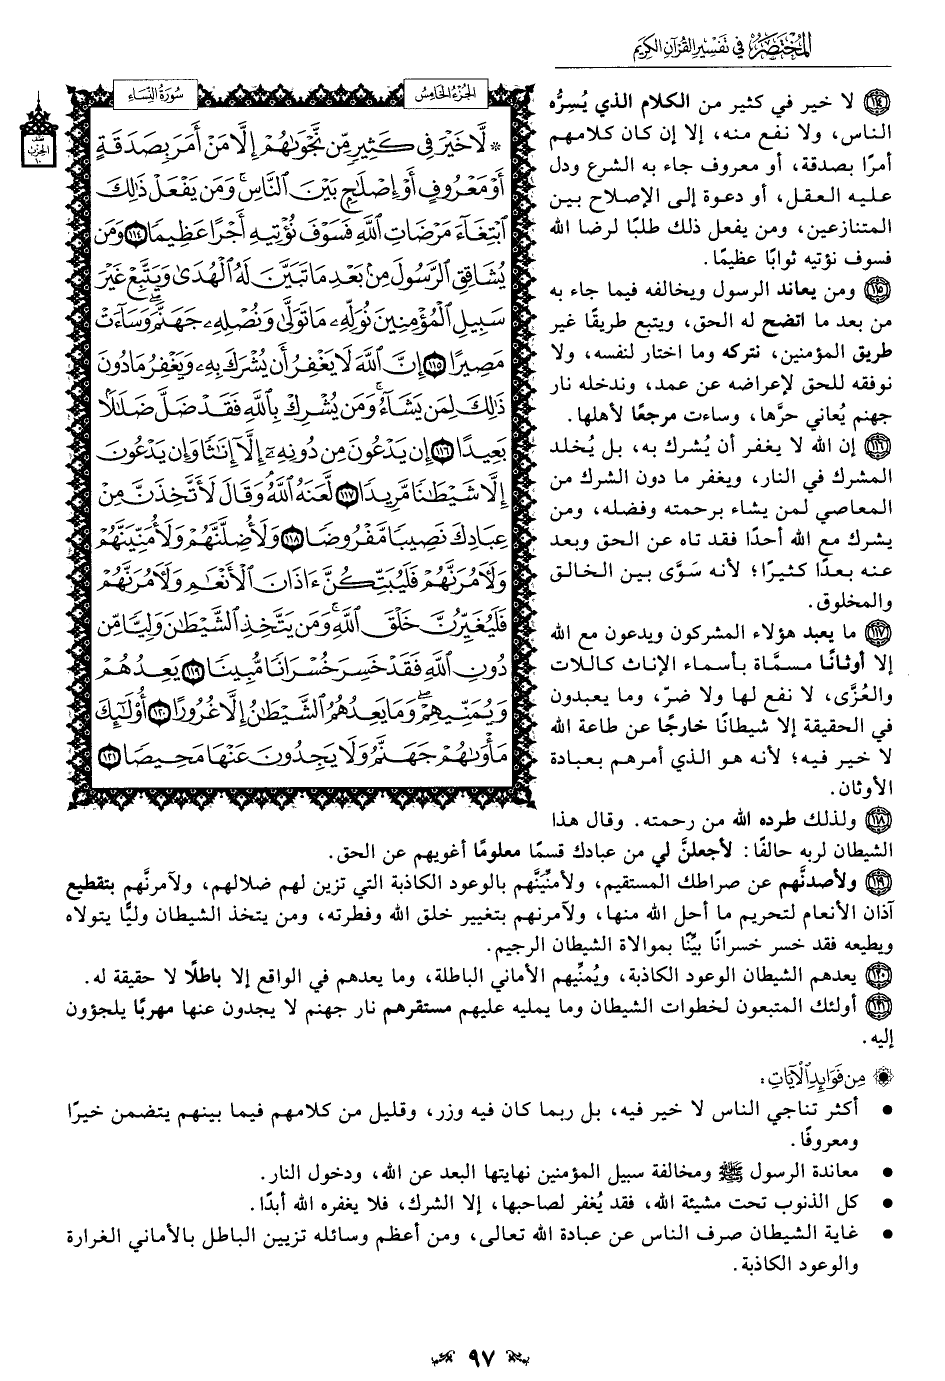 المختصر في تفسير القرآن الكريم
الجزء الخامس
سورة النساء
نصف
الحزب
١٠
* لَّا خَيْرَ فِي كَثِيرٍ مِّن نَّجْوَىٰهُمْ إِلَّا مَنْ أَمَرَ بِصَدَقَةٍ
أَوْ مَعْرُوفٍ أَوْ إِصْلَٰحٍۭ بَيْنَ ٱلنَّاسِۚ وَمَن يَفْعَلْ ذَٰلِكَ
ٱبْتِغَآءَ مَرْضَاتِ ٱللَّهِ فَسَوْفَ نُؤْتِيهِ أَجْرًا عَظِيمًا ١١٤ وَمَن
يُشَاقِقِ ٱلرَّسُولَ مِنۢ بَعْدِ مَا تَبَيَّنَ لَهُ ٱلْهُدَىٰ وَيَتَّبِعْ غَيْرَ
سَبِيلِ ٱلْمُؤْمِنِينَ نُوَلِّهِۦ مَا تَوَلَّىٰ وَنُصْلِهِۦ جَهَنَّمَۖ وَسَآءَتْ
مَصِيرًا ١١٥ إِنَّ ٱللَّهَ لَا يَغْفِرُ أَن يُشْرَكَ بِهِۦ وَيَغْفِرُ مَا دُونَ
ذَٰلِكَ لِمَن يَشَآءُۚ وَمَن يُشْرِكْ بِٱللَّهِ فَقَدْ ضَلَّ ضَلَٰلًۢا
بَعِيدًا ١١٦ إِن يَدْعُونَ مِن دُونِهِۦٓ إِلَّآ إِنَٰثًا وَإِن يَدْعُونَ
إِلَّا شَيْطَٰنًا مَّرِيدًا ١١٧ لَّعَنَهُ ٱللَّهُۘ وَقَالَ لَأَتَّخِذَنَّ مِنْ
عِبَادِكَ نَصِيبًا مَّفْرُوضًا ١١٨ وَلَأُضِلَّنَّهُمْ وَلَأُمَنِّيَنَّهُمْ
وَلَأٓمُرَنَّهُمْ فَلَيُبَتِّكُنَّ ءَاذَانَ ٱلْأَنْعَٰمِ وَلَأٓمُرَنَّهُمْ
فَلَيُغَيِّرُنَّ خَلْقَ ٱللَّهِۚ وَمَن يَتَّخِذِ ٱلشَّيْطَٰنَ وَلِيًّا مِّن
دُونِ ٱللَّهِ فَقَدْ خَسِرَ خُسْرَانًا مُّبِينًا ١١٩ يَعِدُهُمْ
وَيُمَنِّيهِمْۖ وَمَا يَعِدُهُمُ ٱلشَّيْطَٰنُ إِلَّا غُرُورًا ١٢٠ أُو۟لَٰٓئِكَ
مَأْوَىٰهُمْ جَهَنَّمُ وَلَا يَجِدُونَ عَنْهَا مَحِيصًا ١٢١
١١٤ لا خير في كثير من الكلام الذي يُسِرُّه
الناس، ولا نفع منه، إلا إن كان كلامهم
أمرًا بصدقة، أو معروف جاء به الشرع ودل
عليه العقل، أو دعوة إلى الإصلاح بين
المتنازعين، ومن يفعل ذلك طلبًا لرضا الله
فسوف نؤتيه ثوابًا عظيمًا.
١١٥ ومن يعاند الرسول ويخالفه فيما جاء به
من بعد ما اتضح له الحق، ويتبع طريقًا غير
طريق المؤمنين، نتركه وما اختار لنفسه، ولا
نوفقه للحق لإعراضه عن عمد، وندخله نار
جهنم يُعاني حرَّها، وساءت مرجعًا لأهلها.
١١٦ إن الله لا يغفر أن يُشرك به، بل يُخلد
المشرك في النار، ويغفر ما دون الشرك من
المعاصي لمن يشاء برحمته وفضله، ومن
يشرك مع الله أحدًا فقد تاه عن الحق وبعد
عنه بعدًا كثيرًا؛ لأنه سَوَّى بين الخالق
والمخلوق.
١١٧ ما يعبد هؤلاء المشركون ويدعون مع الله
إلا أوثانًا مسمَّاة بأسماء الإناث كاللات
والعُزَّى، لا نفع لها ولا ضرّ، وما يعبدون
في الحقيقة إلا شيطانًا خارجًا عن طاعة الله
لا خير فيه؛ لأنه هو الذي أمرهم بعبادة
الأوثان.
١١٨ ولذلك طرده الله من رحمته. وقال هذا
الشيطان لربه حالفًا: لأجعلنَّ لي من عبادك قسمًا معلومًا أغويهم عن الحق.
١١٩ ولأصدنَّهم عن صراطك المستقيم، ولأمنِّيَنَّهم بالوعود الكاذبة التي تزين لهم ضلالهم، ولآمرنَّهم بتقطيع
آذان الأنعام لتحريم ما أحل الله منها، ولآمرنهم بتغيير خلق الله وفطرته، ومن يتخذ الشيطان وليًّا يتولاه
ويطيعه فقد خسر خسرانًا بيِّنًا بموالاة الشيطان الرجيم.
١٢٠ يعدهم الشيطان الوعود الكاذبة، ويُمنِّيهم الأماني الباطلة، وما يعدهم في الواقع إلا باطلًا لا حقيقة له.
١٢١ أولئك المتبعون لخطوات الشيطان وما يمليه عليهم مستقرهم نار جهنم لا يجدون عنها مهربًا يلجؤون
إليه.
من فوائد الآيات:
• أكثر تناجي الناس لا خير فيه، بل ربما كان فيه وزر، وقليل من كلامهم فيما بينهم يتضمن خيرًا
ومعروفًا.
• معاندة الرسول ﷺ ومخالفة سبيل المؤمنين نهايتها البعد عن الله، ودخول النار.
• كل الذنوب تحت مشيئة الله، فقد يُغفر لصاحبها، إلا الشرك، فلا يغفره الله أبدًا.
• غاية الشيطان صرف الناس عن عبادة الله تعالى، ومن أعظم وسائله تزيين الباطل بالأماني الغرارة
والوعود الكاذبة.
٩٧